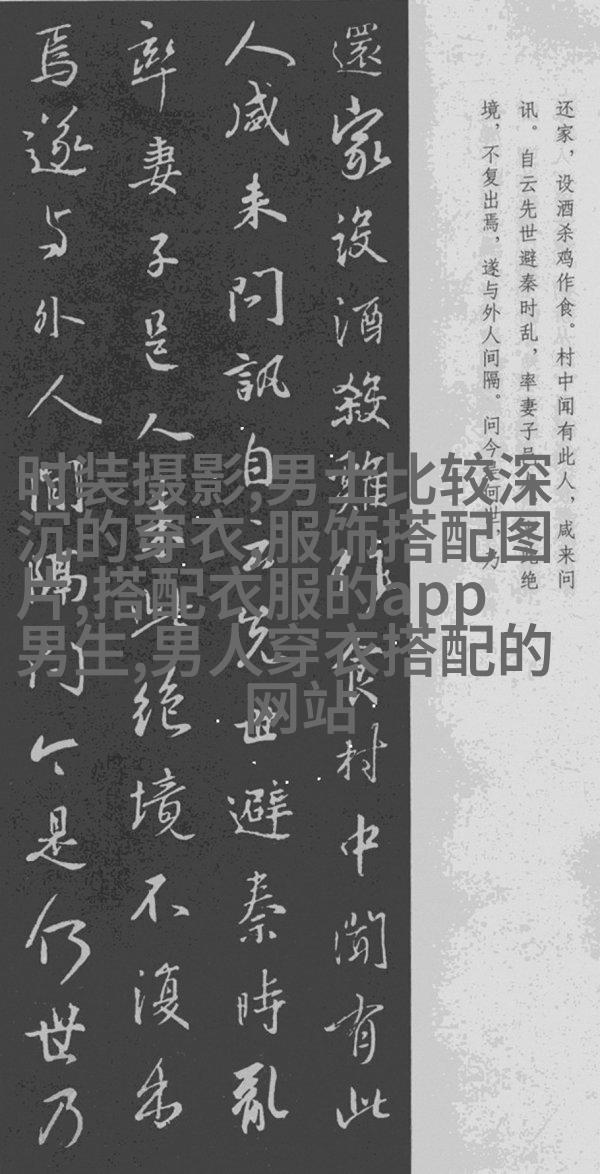 还家，设酒杀鸡作食。村中闻有此人，咸来问
讯。自云先世避秦时乱，率妻子绝
境，不复出焉，遂与外人间隔。问今何世，乃
還家設酒殺雞作食村中聞有此
人咸来問訊自云先世避秦時亂
率妻子邑人来此絶境不復出
焉遂与外人間隔問今是何世乃
时装摄影,男士比较深
沉的穿衣,服饰搭配图
片,搭配衣服的app
男生,男人穿衣搭配的
网站